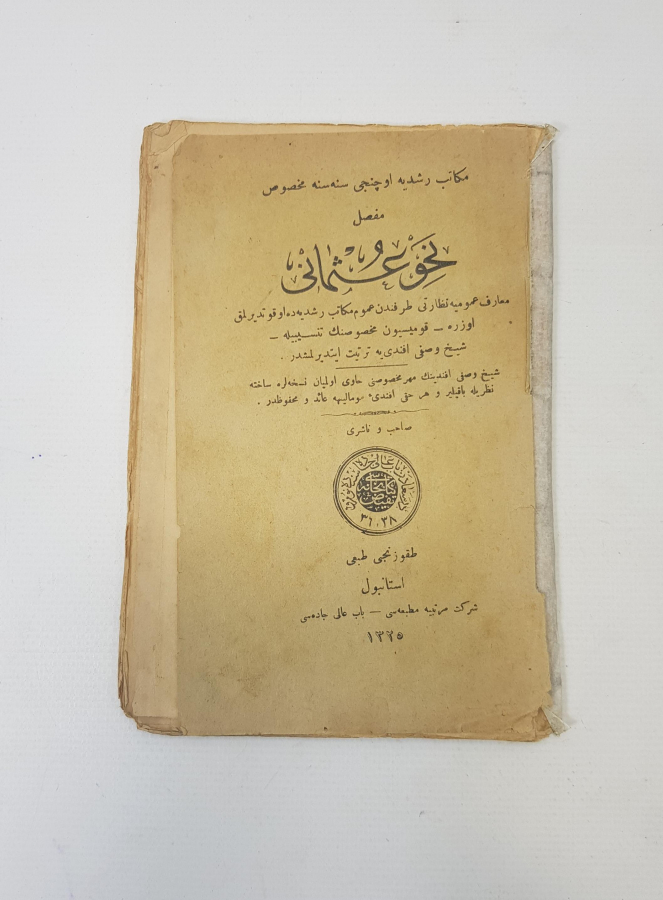 مكاتب رشديه اوچنجى سنه سنه مخصوص
مفصل
نحو عثمانى
معارف عموميه نظارتى طرفندن عموم مكاتب رشديه ده اوقوتديرلمق
اوزره — قوميسيون مخصوصنك تنسيبيله —
شيخ وصفى افندى يه ترتيب ايتديرلمشدر .
شيخ وصفى افندينك مهر مخصوصنى حاوى اولميان نسخه لره ساخته
نظريله باقيلير و هر حقى افندئ موماليهه عائد و محفوظدر .
صاحب و ناشرى
كتابخانه
٣٨
طقوزنجى طبعى
استانبول
شركت مرتبيه مطبعه سى — باب عالى جاده سى
١٣٢٥